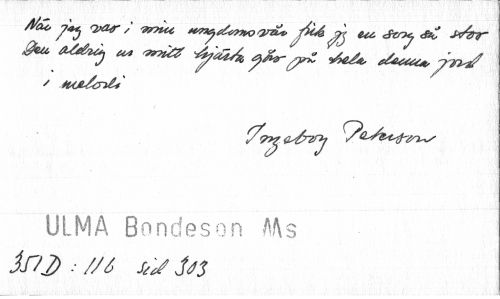 När jag var i min ungdoms vår fick jg en sorg så stor
Den aldrig ur mitt hjärta går på hela denna jord
i melodi
Ingeborg Peterson
ULMA Bondeson Ms
351D : 116 sid 303